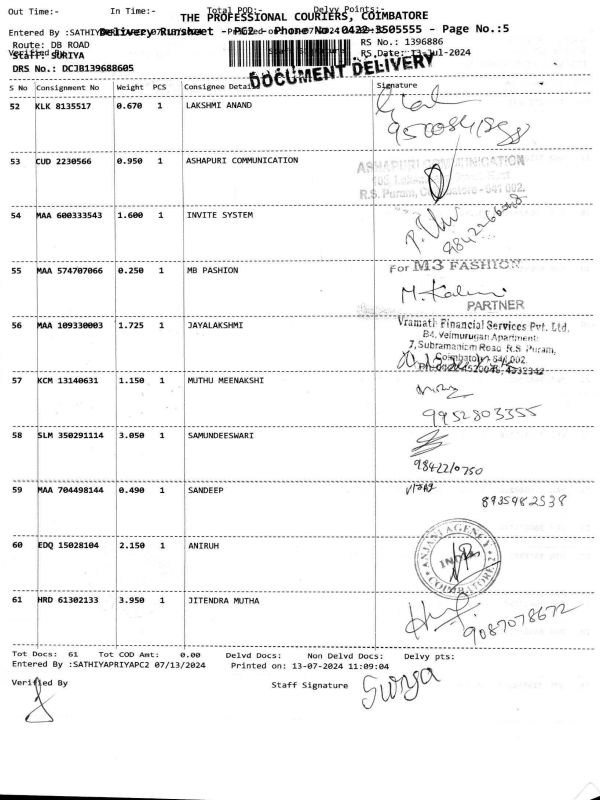 Out Time:- In Time:- Total POD:- Delvy Points:-
THE PROFESSIONAL COURIERS, COIMBATORE
Entered By :SATHIYAPRIYAPC2 07/13/2024 Printed on: 13-07-2024
Delivery Runsheet - PC2 - Phone No. :0422-3505555 - Page No.:5
Route: DB ROAD RS No.: 1396886
Verified By Staff Signature
Staff: SURIYA RS Date: 13-Jul-2024
DRS No.: DCJB139688605
DOCUMENT DELIVERY
S No Consignment No Weight PCS Consignee Details Signature
52 KLK 8135517 0.670 1 LAKSHMI ANAND
53 CUD 2230566 0.950 1 ASHAPURI COMMUNICATION
ASHAPURI COMMUNICATION
R.S. Puram, Coimbatore - 641 002.
54 MAA 600333543 1.600 1 INVITE SYSTEM
55 MAA 574707066 0.250 1 MB PASHION
For M3 FASHION
PARTNER
56 MAA 109330003 1.725 1 JAYALAKSHMI
Vramath Financial Services Pvt. Ltd.
B4, Velmurugan Apartment
7, Subramaniam Road R.S Puram,
Coimbatore 641 002.
Ph: 0422-4520046, 4332342
57 KCM 13140631 1.150 1 MUTHU MEENAKSHI
9952803355
58 SLM 350291114 3.050 1 SAMUNDEESWARI
9842210750
59 MAA 704498144 0.490 1 SANDEEP
8935982538
60 EDQ 15028104 2.150 1 ANIRUH
ANJANI AGENCY
INDIA
COIMBATORE-2
61 HRD 61302133 3.950 1 JITENDRA MUTHA
9087078672
Tot Docs: 61 Tot COD Amt: 0.00 Delvd Docs: Non Delvd Docs: Delvy pts:
Entered By :SATHIYAPRIYAPC2 07/13/2024 Printed on: 13-07-2024 11:09:04
Verified By Staff Signature Surya